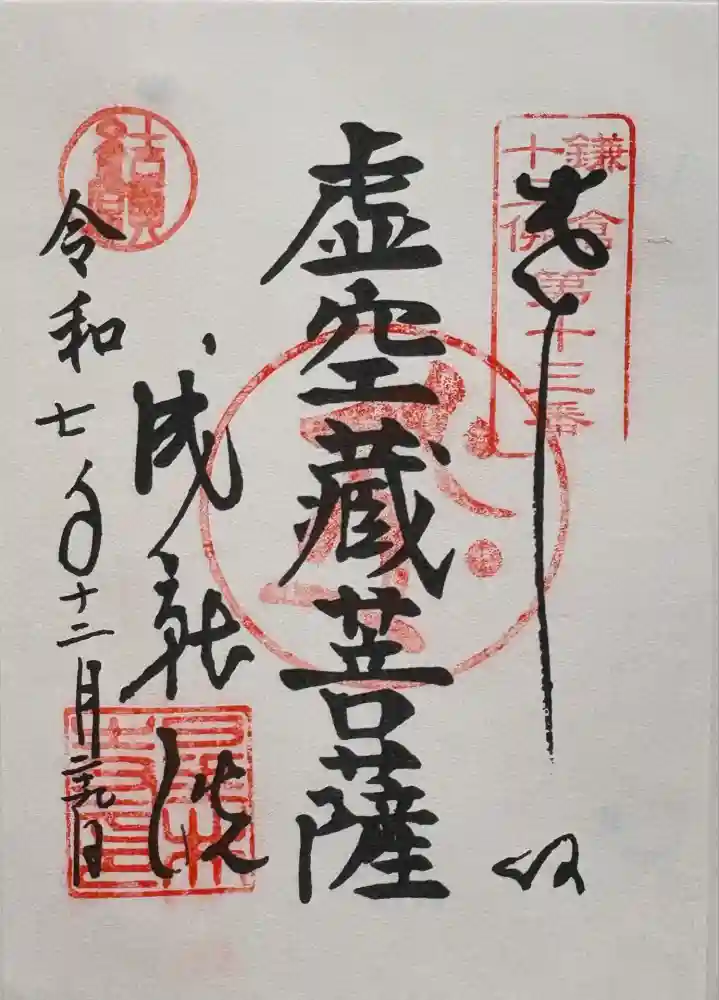 鎌倉
十三佛第十三番
奉拝
虚空蔵菩薩
成就院
令和七年十二月二十九日